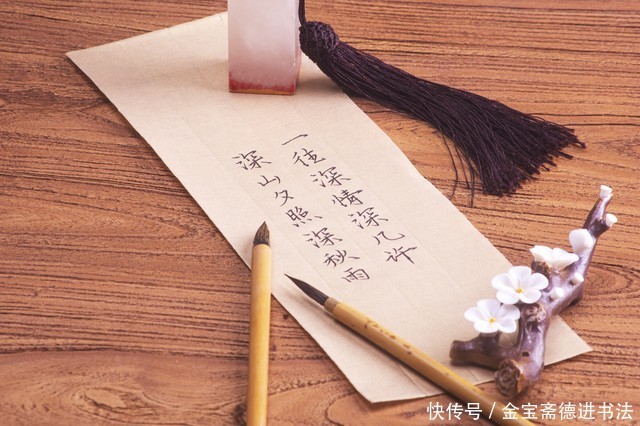 一往深情深几许
深山夕照深秋雨
快传号／金宝斋德进书法